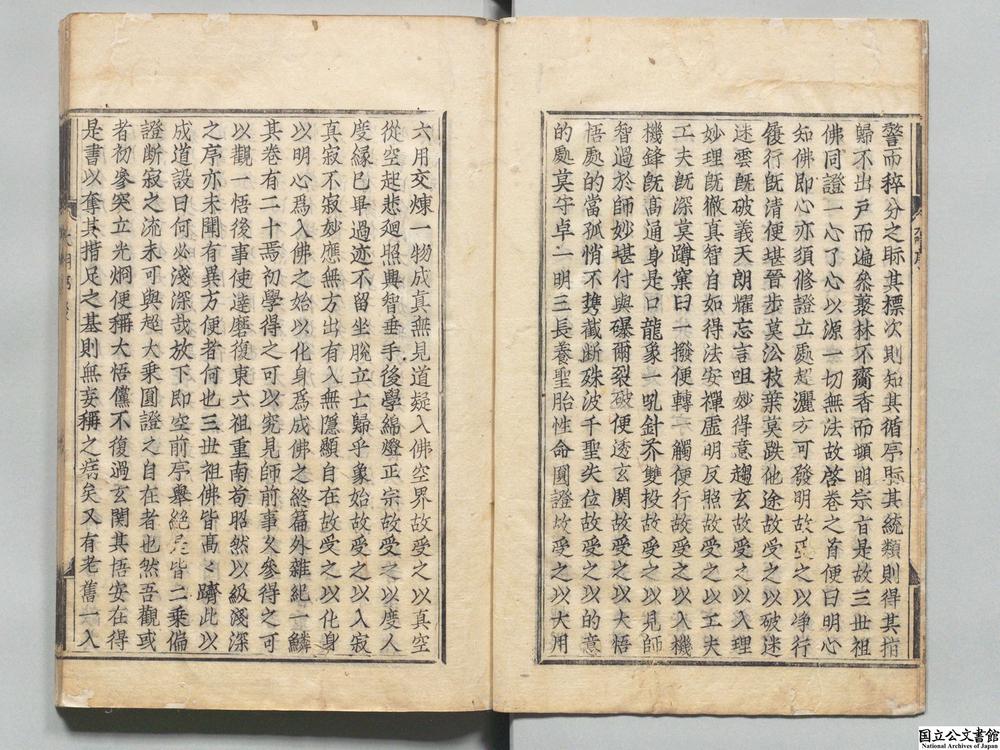 警而稡分之眎其標次則知其循序眎其統類則得其指
歸不出戶而遍叅藂林不齎香而頓明宗旨是故三世祖
佛同證一心了心以源一切無法故啓卷之首便曰明心
知佛即心亦須修證立處超灑方可發明故受之以净行
履行旣清便堪晉步莫泓枝葉莫跌他途故受之以破迷
迷雲旣破義天朗耀忘言咀妙得意趨玄故受之以入理
妙理旣徹真智自如得法安禪虛明反照故受之以工夫
工夫旣深莫蹲窠臼一撥便轉一觸便行故受之以入機
機鋒旣高通身是口龍象一吼針芥雙投故受之以見師
智過於師妙堪付與𥗋爾裂破便透玄関故受之以大悟
悟處的當孤悄不㩦截断殊波千聖失位故受之以的意
的處莫守卓一明三長養聖胎性命圓證故受之以大用
六用交煉一物成真無見道疑入佛空界故受之以真空
從空起悲廻照興智垂手後學綿燈正宗故受之以度人
度縁已畢過迹不留坐脫立亡歸乎象始故受之以入寂
真寂不寂妙應無方出有入無隱顯自在故受之以化身
以明心爲入佛之始以化身爲成佛之終篇外雜紀一鱗
其卷有二十焉初學得之可以究見師前事久參得之可
以觀一悟後事使達磨復東六祖重南苟昭然以級淺深
之序亦未聞有異方便者何也三世祖佛皆高〻躋此以
成道設曰何必淺深哉放下即空前序舉絕是皆二乗偏
證断寂之流未可與超大乗圓證之自在者也然吾觀或
者初參突立光烱便稱大悟儻不復過玄関其悟安在得
是書以奪其措足之基則無妄稱之痞矣又有老舊一入
国立公文書館
National Archives of Japan